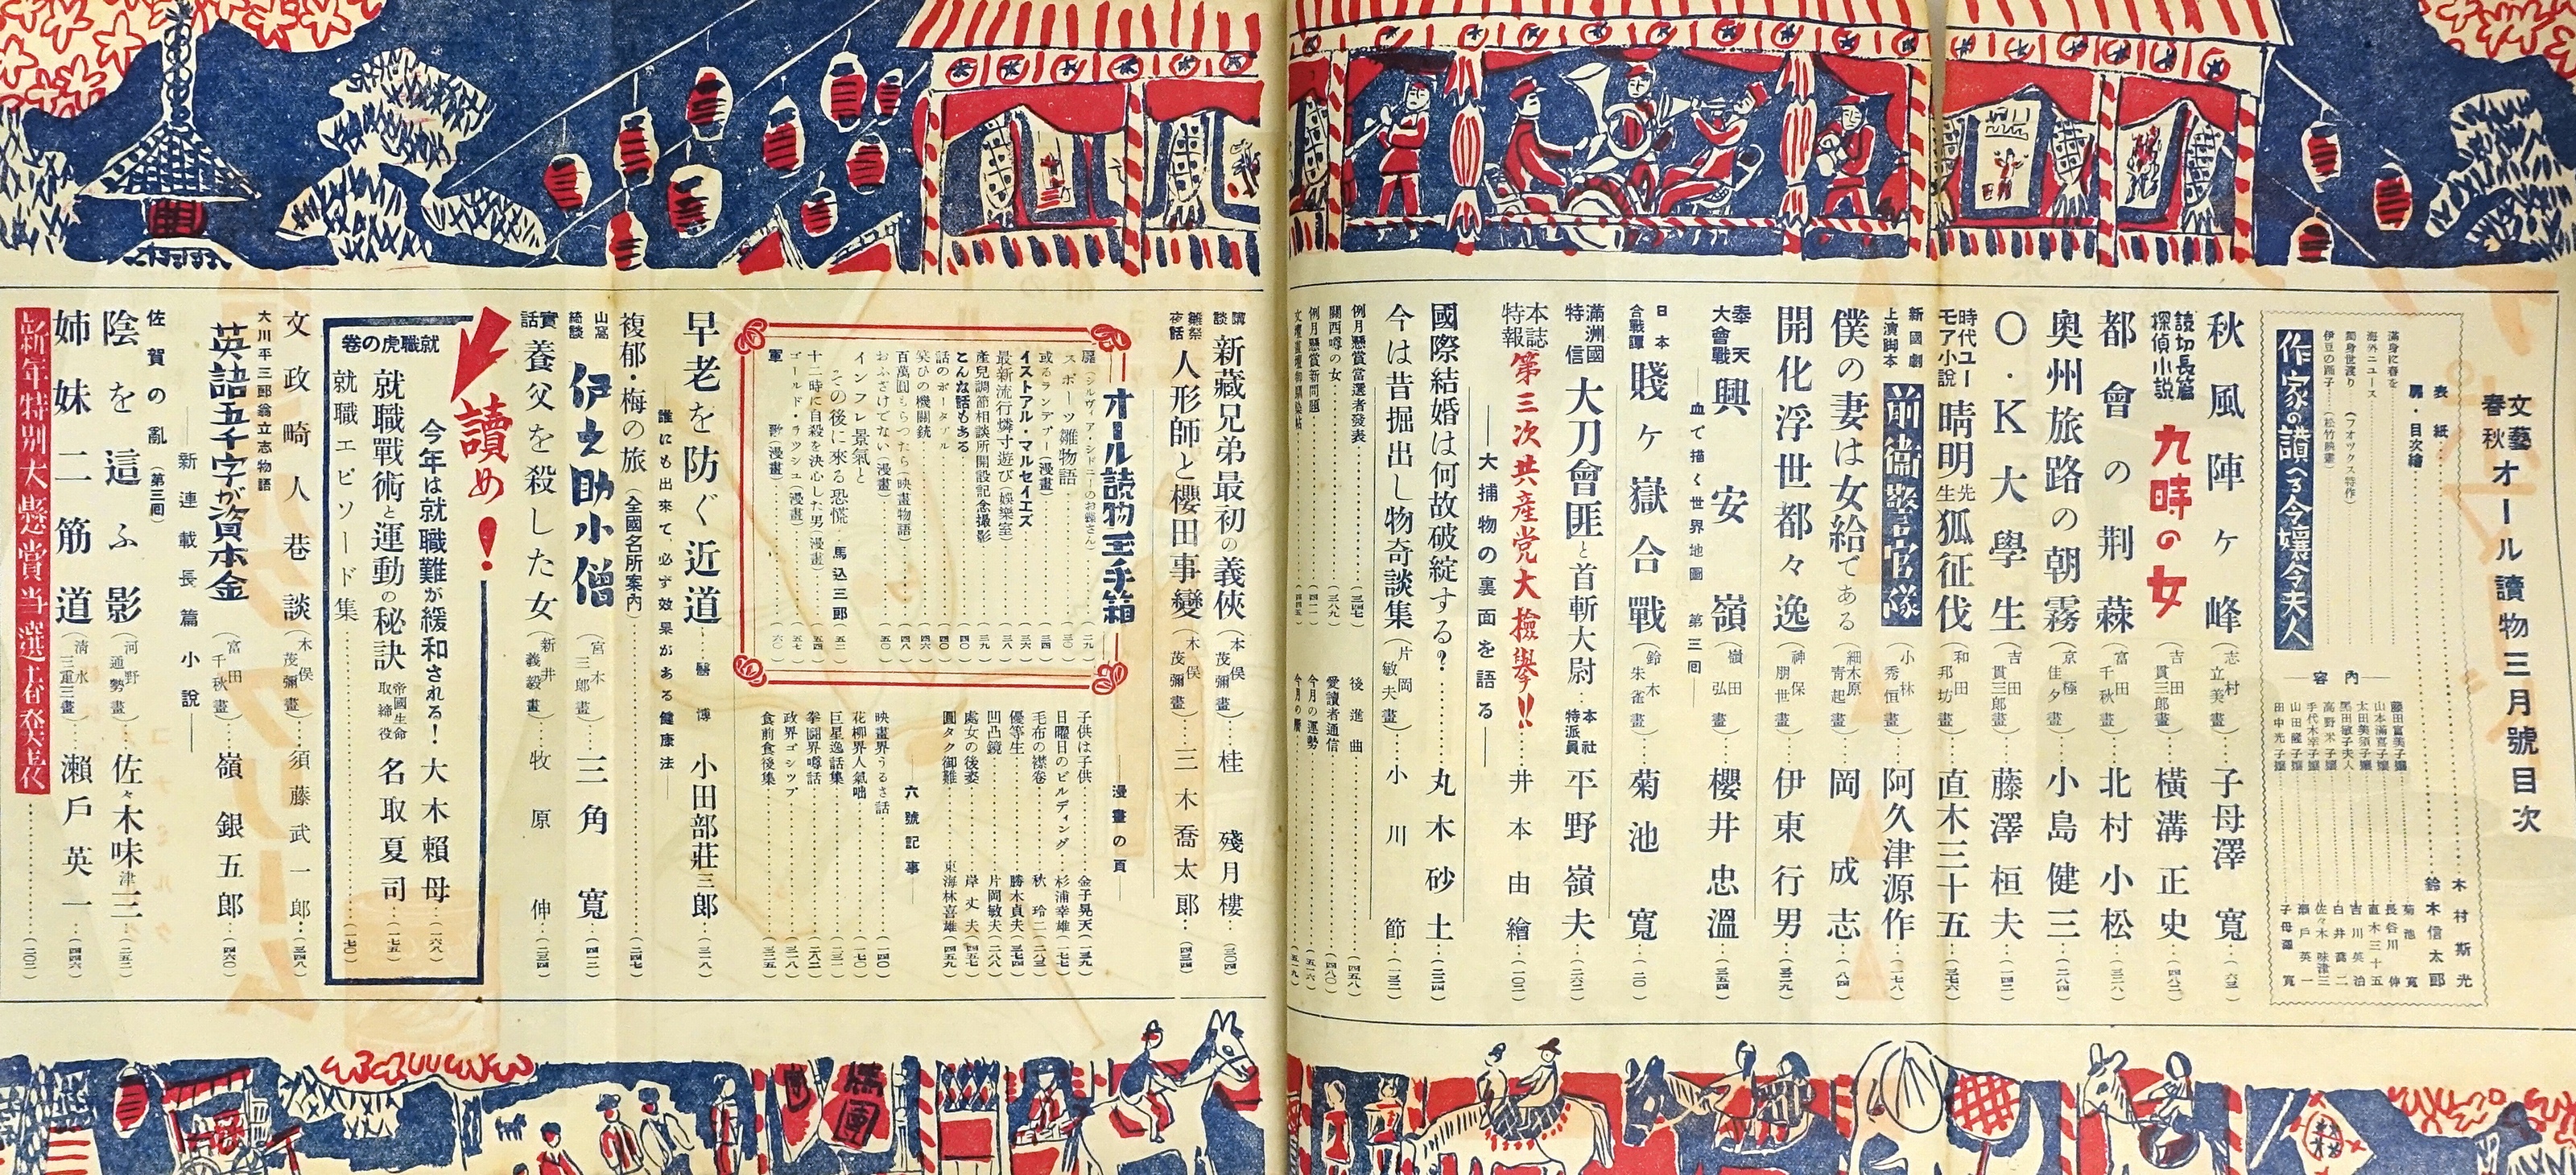 文藝春秋 オール讀物三月號目次
表紙…木村斯光
扉・目次繪…鈴木信太郎
滿身に春を
海外ニュース
獨身世渡り(フオツクス特作)
伊豆の踊子(松竹映畫)
作家の讃へる令孃令夫人
内容
藤田富美子孃…菊池寬
山本滿喜子孃…長谷川伸
太田美須子孃…直木三十五
黑田敏子夫人…吉川英治
高野米子孃…白井喬二
手代木幸子孃…佐々木味津三
山田隆子孃…瀨戶英一
田中光子孃…子母澤寬
秋風陣ヶ峰(志村立美畫)…子母澤寬(六三)
讀切長篇探偵小說 九時の女(吉田貫三郎畫)…橫溝正史(四八二)
都會の荆蕀(富田千秋畫)…北村小松(三三八)
奧州旅路の朝霧(京極佳夕畫)…小島健三(二八四)
〇・K大學生(吉田貫三郎畫)…藤澤桓夫(一四二)
時代ユーモア小說 晴明先生狐征伐(和田邦坊畫)…直木三十五(三七六)
新國劇上演脚本 前衞警官隊(小林秀恒畫)…阿久津源作(一七八)
僕の妻は女給である(細木原靑起畫)…岡成志(八四)
開化浮世都々逸(神保朋世畫)…伊東行男(三二九)
奉天大會戰 興安嶺(嶺田弘畫)…櫻井忠溫(三五四)
血で描く世界地圖 第三回
日本合戰譚 賤ヶ嶽合戰(鈴木朱雀畫)…菊池寬(二〇)
滿洲國特信 大刀會匪と首斬大尉…本社特派員 平野嶺夫(二六二)
本誌特報 第三次共產党大檢擧!!…井本由繪(一〇二)
―大捕物の裏面を語る―
國際結婚は何故破綻する?…丸木砂土(二二四)
今は昔掘出し物奇談集(片岡敏夫畫)…小川節(一三二)
例月懸賞當選者發表…(三四七)
關西噂の女…(三八九)
例月懸賞新問題…(四一一)
後進曲…(四五八)
愛讀者通信…(四八〇)
今月の運勢…(五一六)
今月の曆…(五一九)
講談 新藏兄弟最初の義俠(木俣茂彌畫)…桂殘月樓(三〇四)
雛祭夜話 人形師と櫻田事變(木俣茂彌畫)…三木喬太郎(四三四)
オール讀物玉手箱
扉(シルヴィア・シドニーのお蝶さん)…(二九)
スポーツ雛物語…(三〇)
或るランデブー(漫畫)…(三四)
イストアル・マルセイエズ…(三六)
最新流行燐寸遊び(娛樂室)…(三八)
產兒調節相談所開設記念撮影…(三九)
こんな話もある…(四〇)
話のポータブル…(四〇)
笑ひの機關銃…(四六)
百萬圓もらつたら(映畫物語)…(四八)
おふざけでない(漫畫)…(五〇)
インフレ景氣と
その後に來る恐慌…馬込三郎(五二)
十二時に自殺を決心した男(漫畫)…(五四)
ゴールド・ラツシユ(漫畫)…(五七)
軍歌(漫畫)…(六〇)
漫畫の頁
子供は子供…金子晃天(一三九)
日曜日のビルデイング…杉浦幸雄(一七七)
毛布の襟卷…秋玲二(二八三)
優等生…勝木貞夫(三七四)
凹凸鏡…片岡敏夫(二八八)
處女の後姿…岸丈夫(四五七)
圓タク御難…東海林喜雄(四五九)
六號記事
映畫界うるさ話…(一四〇)
花柳界人氣咄…(一七〇)
巨星逸話集…(二三一)
拳鬪界噂話…(二八二)
政界ゴシツプ…(三一八)
食前食後集…(三二五)
早老を防ぐ近道…醫博 小田部莊三郎(三一八)
誰にも出來て必ず效果がある健康法
複郁・梅の旅(全國名所案內)…(二四七)
山窩綺談 伊之助小僧(宮木三郎畫)…三角寬(四一二)
實話 養父を殺した女(新井義毅畫)…牧原伸(二三四)
讀め!
就職虎の卷
今年は就職難が緩和される!…大木賴母(一六八)
就職戰術と運動の秘訣 帝國生命取締役 名取夏司(一七五)
就職エピソード集…(一七〇)
文政畸人巷談(木俣茂彌畫)…須藤武一郎(三四八)
大川平三郎翁立志物語
英語五千字が資本金(富田千秋畫)…嶺銀五郎(四六〇)
―新連載長篇小說―
佐賀の亂(第三回)
陰を這ふ影(河野通勢畫)…佐々木味津三(二五二)
姉妹二筋道(淸水三重三畫)…瀨戶英一(四四六)
新年特別大懸賞当選者發表…(二〇二)